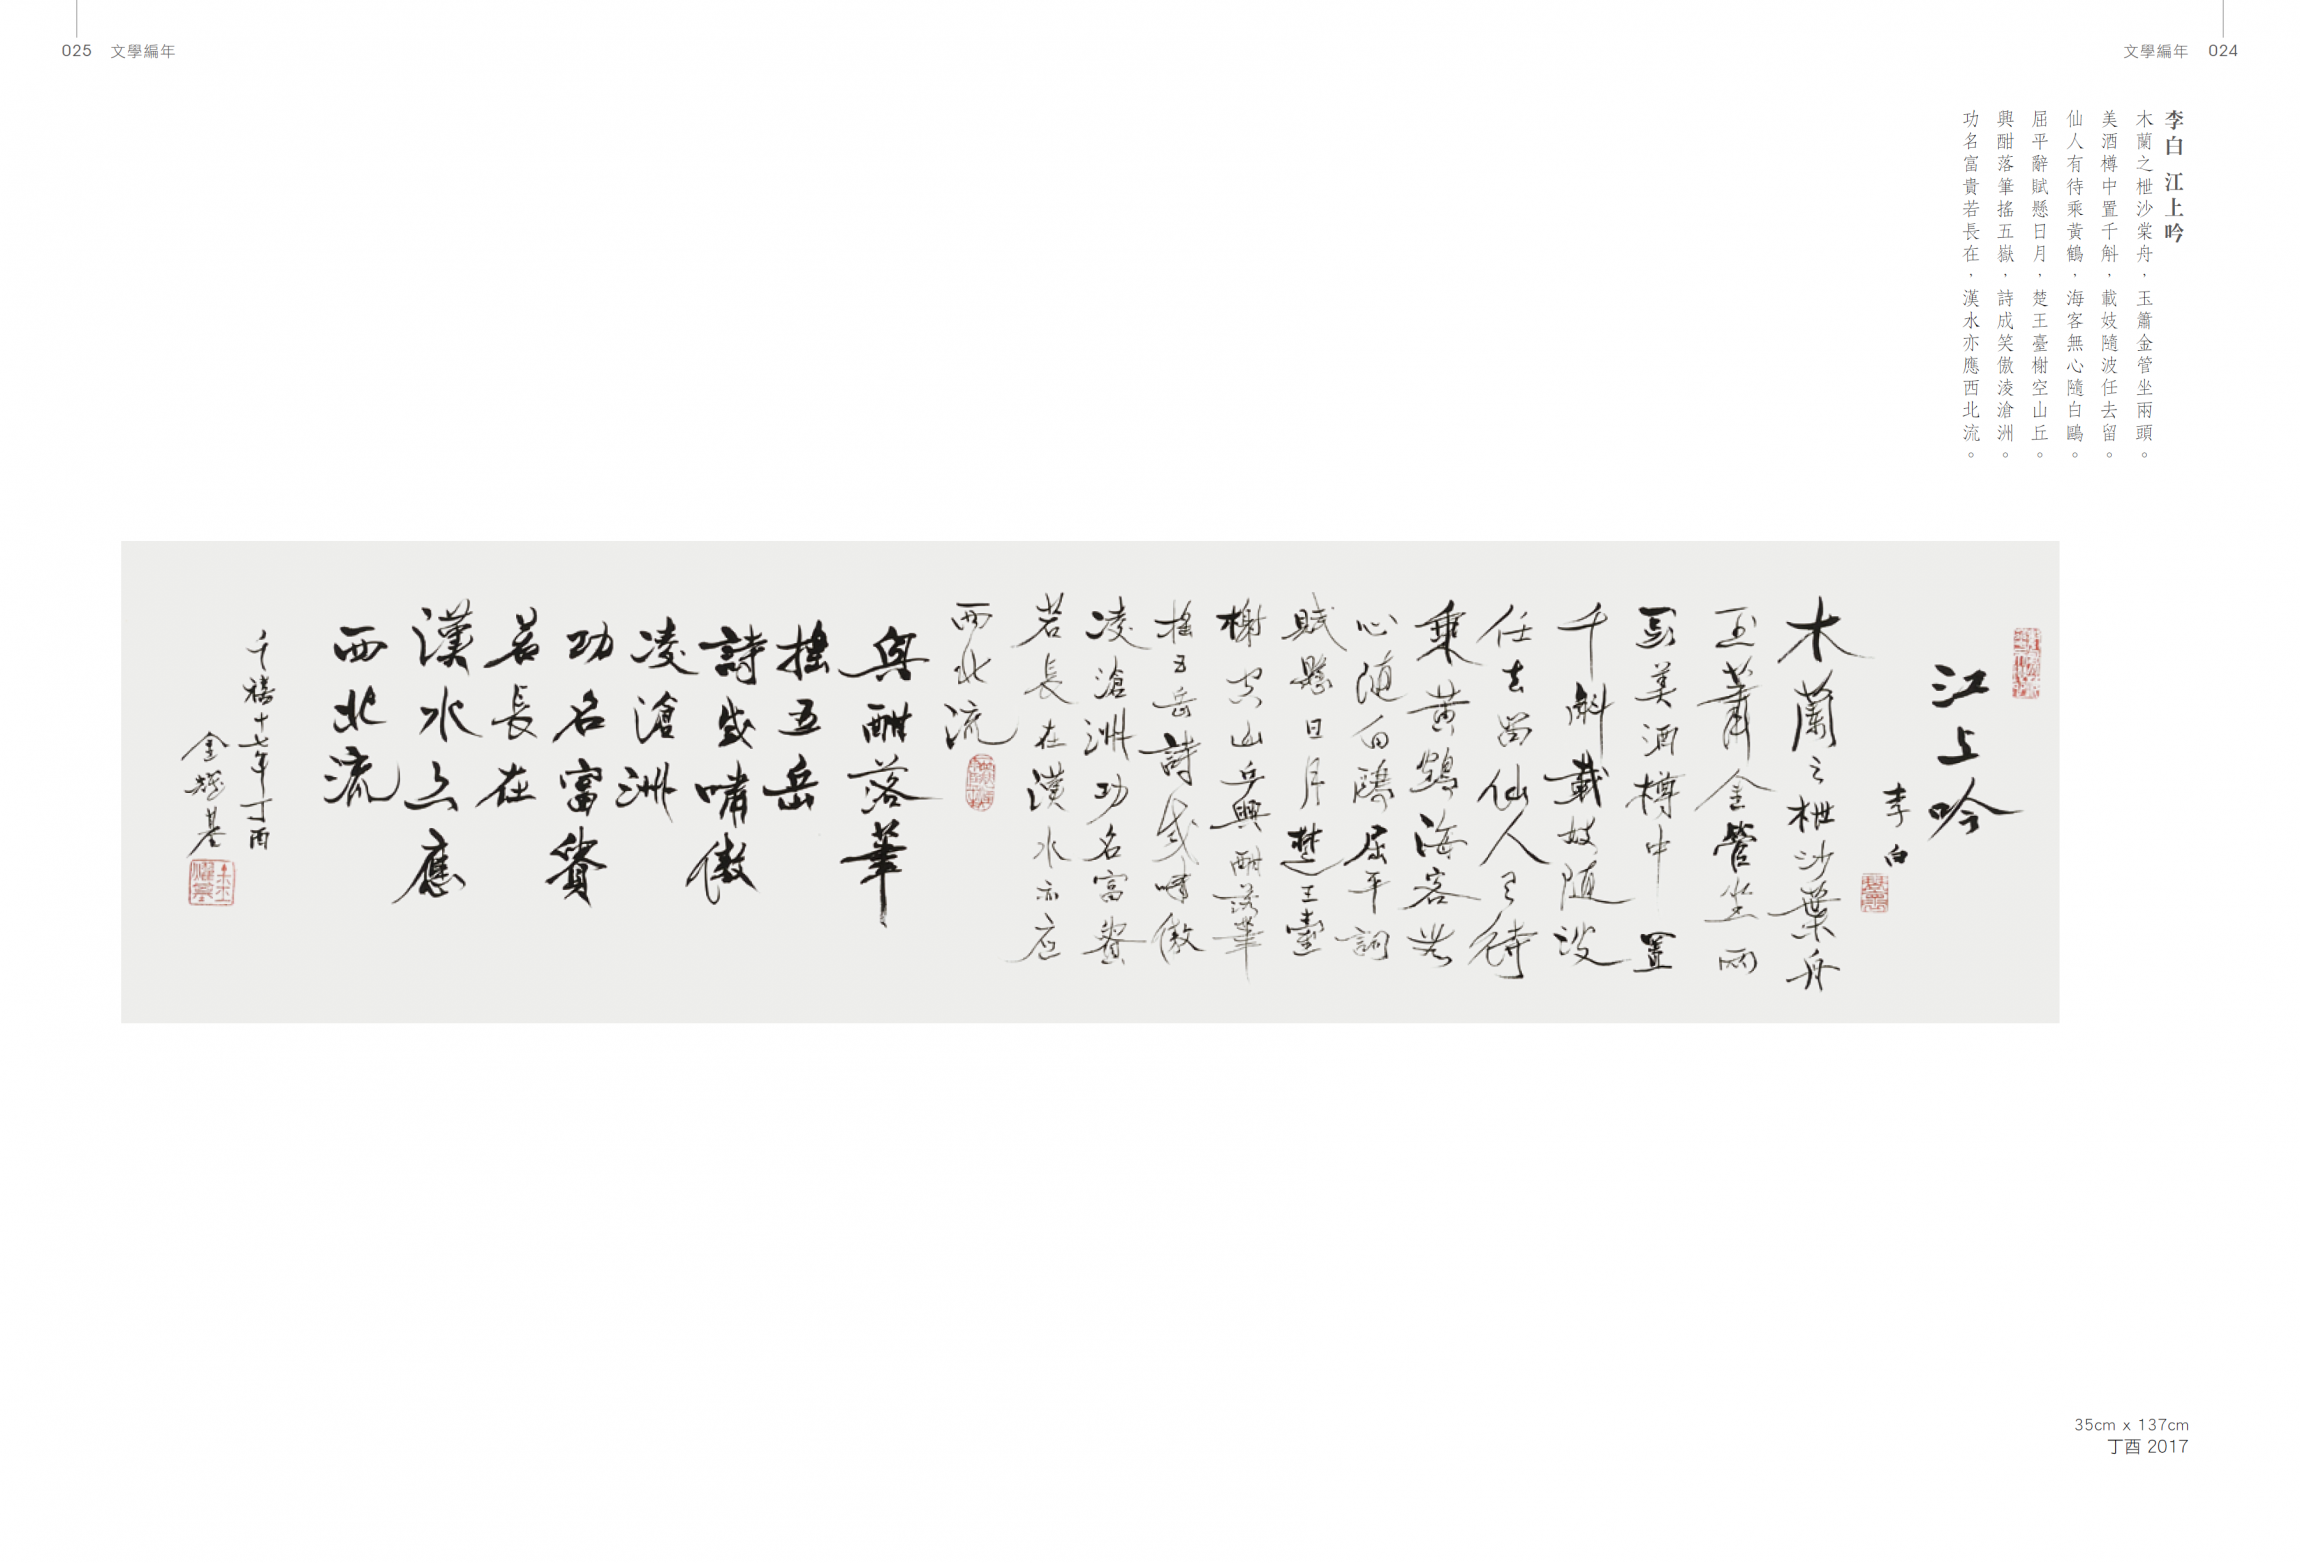 文學編年 024
李白 江上吟
木蘭之枻沙棠舟，玉簫金管坐兩頭。
美酒樽中置千斛，載妓隨波任去留。
仙人有待乘黃鶴，海客無心隨白鷗。
屈平辭賦懸日月，楚王臺榭空山丘。
興酣落筆搖五嶽，詩成笑傲淩滄洲。
功名富貴若長在，漢水亦應西北流。
江上吟
李白
木蘭之枻沙棠舟
玉簫金管坐兩
頭美酒樽中置
千斛載妓随波
任去留仙人有待
乘黃鶴海客無
心随白鷗屈平詞
賦懸日月楚王臺
榭空山丘興酣落筆
搖五岳詩成嘯傲
凌滄洲功名富貴
若長在漢水亦应
西北流
興酣落筆
搖五岳
詩成嘯傲
凌滄洲
功名富貴
若長在
漢水亦應
西北流
千禧十七年丁酉
金耀基
35cm x 137cm
丁酉 2017
025 文學編年